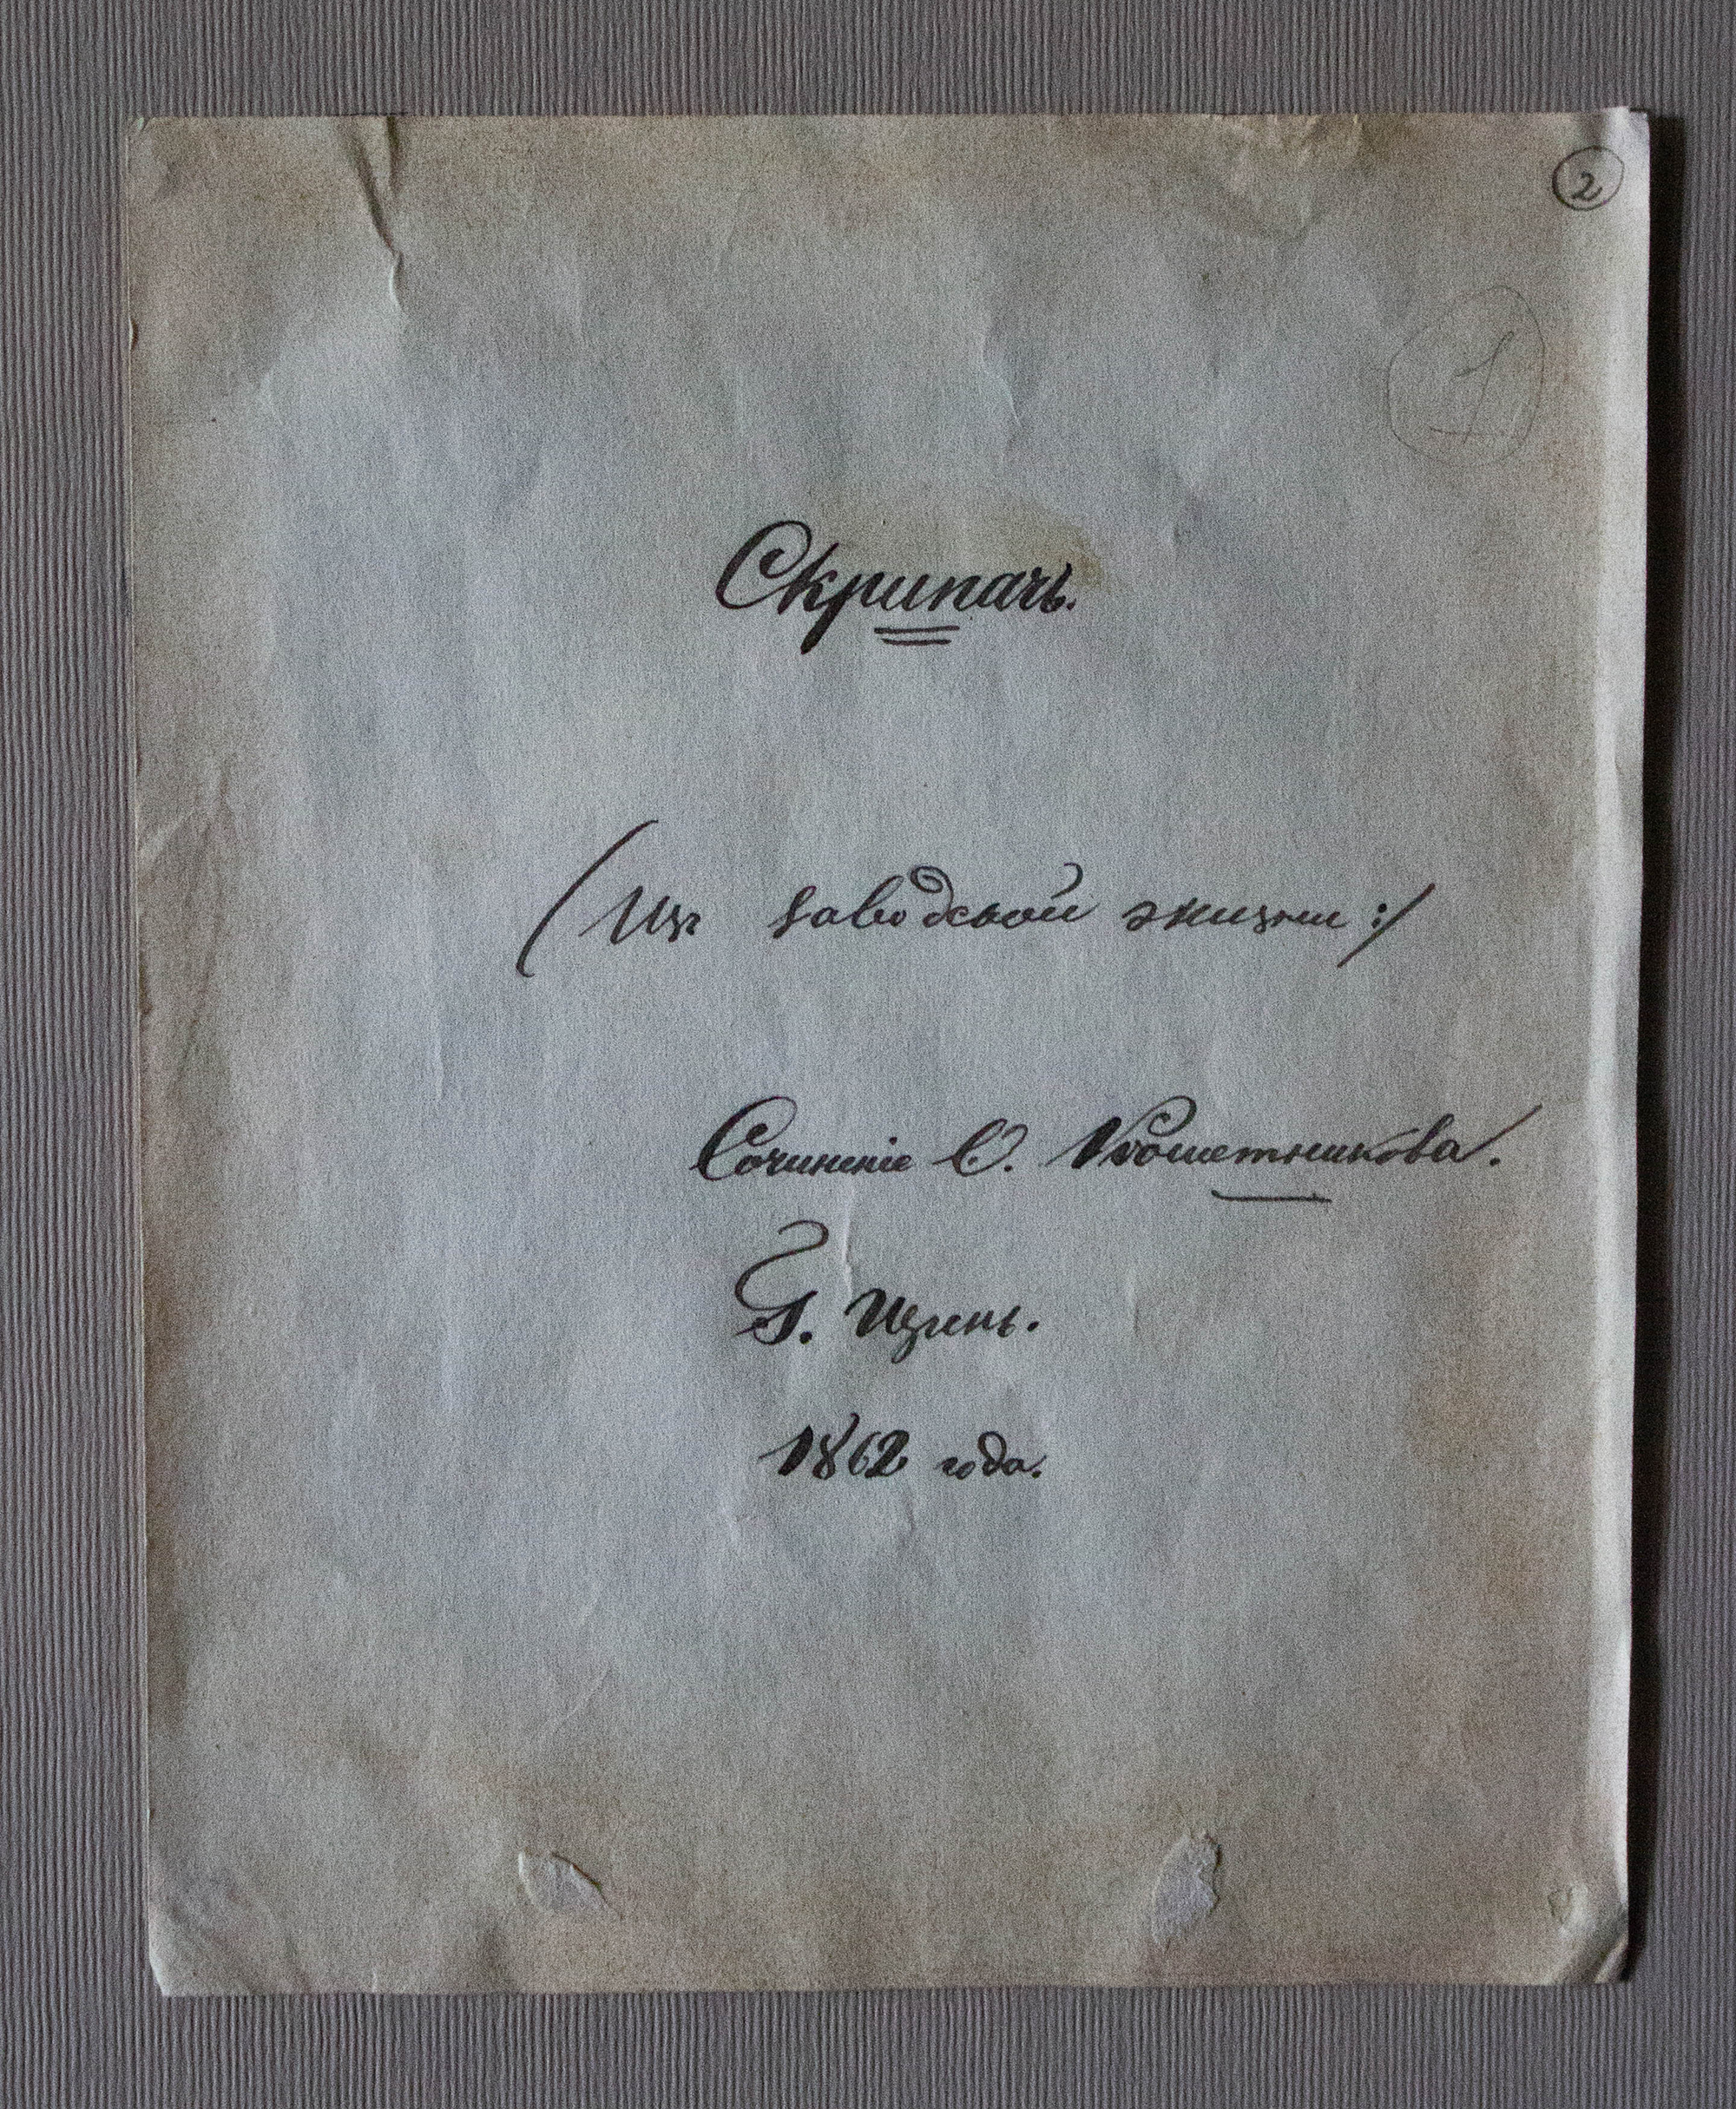 2
1
Скрипачъ.
(Изъ заводской жизни:/
Сочиненіе Ѳ. Рѣшетникова.
Г. Пермь.
1862 года.